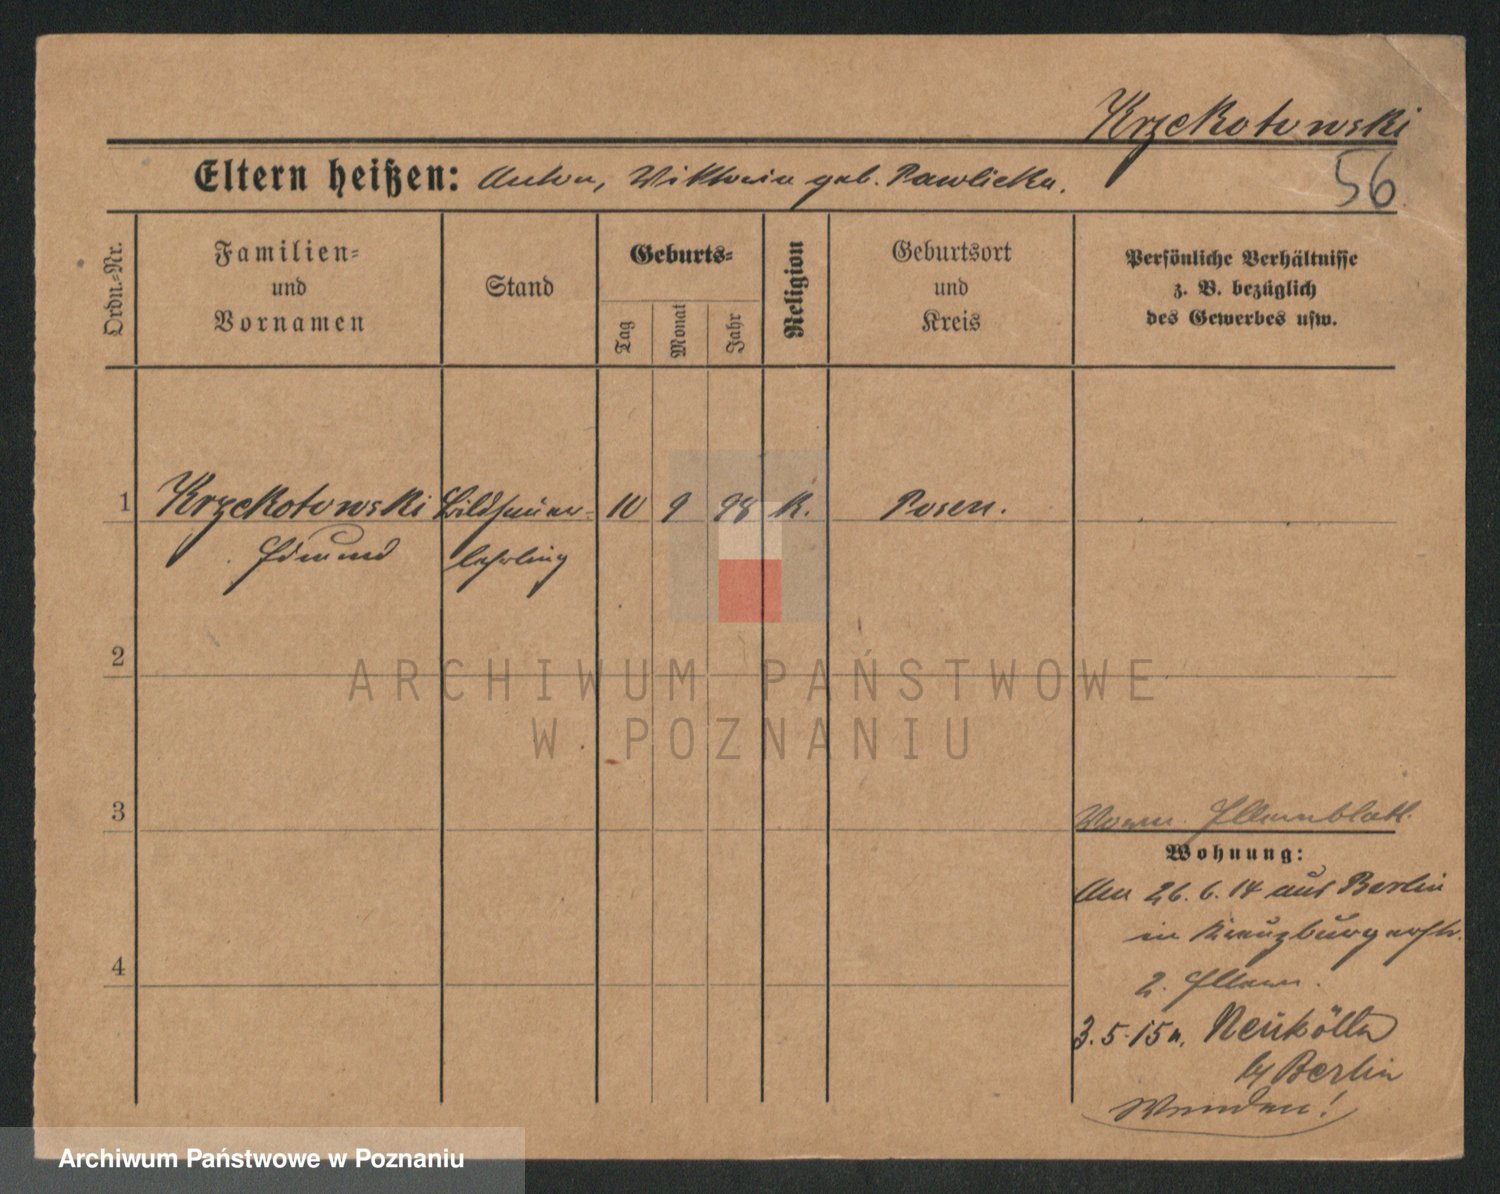 Krzekotowski
Eltern heißen: Anton, Wiktoria geb. Pawlicka.
56
Ordn.=Nr.
Familien=
und
Vornamen
Stand
Geburts=
Tag
Monat
Jahr
Religion
Geburtsort
und
Kreis
Persönliche Verhältnisse
z. B. bezüglich
des Gewerbes usw.
1 Krzekotowski Bildhauer- 10 9 98 K. Posen.
Edmund lehrling
2
3
4
Elternblatt.
Wohnung:
An 26.6.14 aus Berlin
in Kreuzburgerstr.
2. Eltern.
3.5.15 n. Neukölln
b/ Berlin
Wenden!
ARCHIWUM PAŃSTWOWE
W POZNANIU
Archiwum Państwowe w Poznaniu